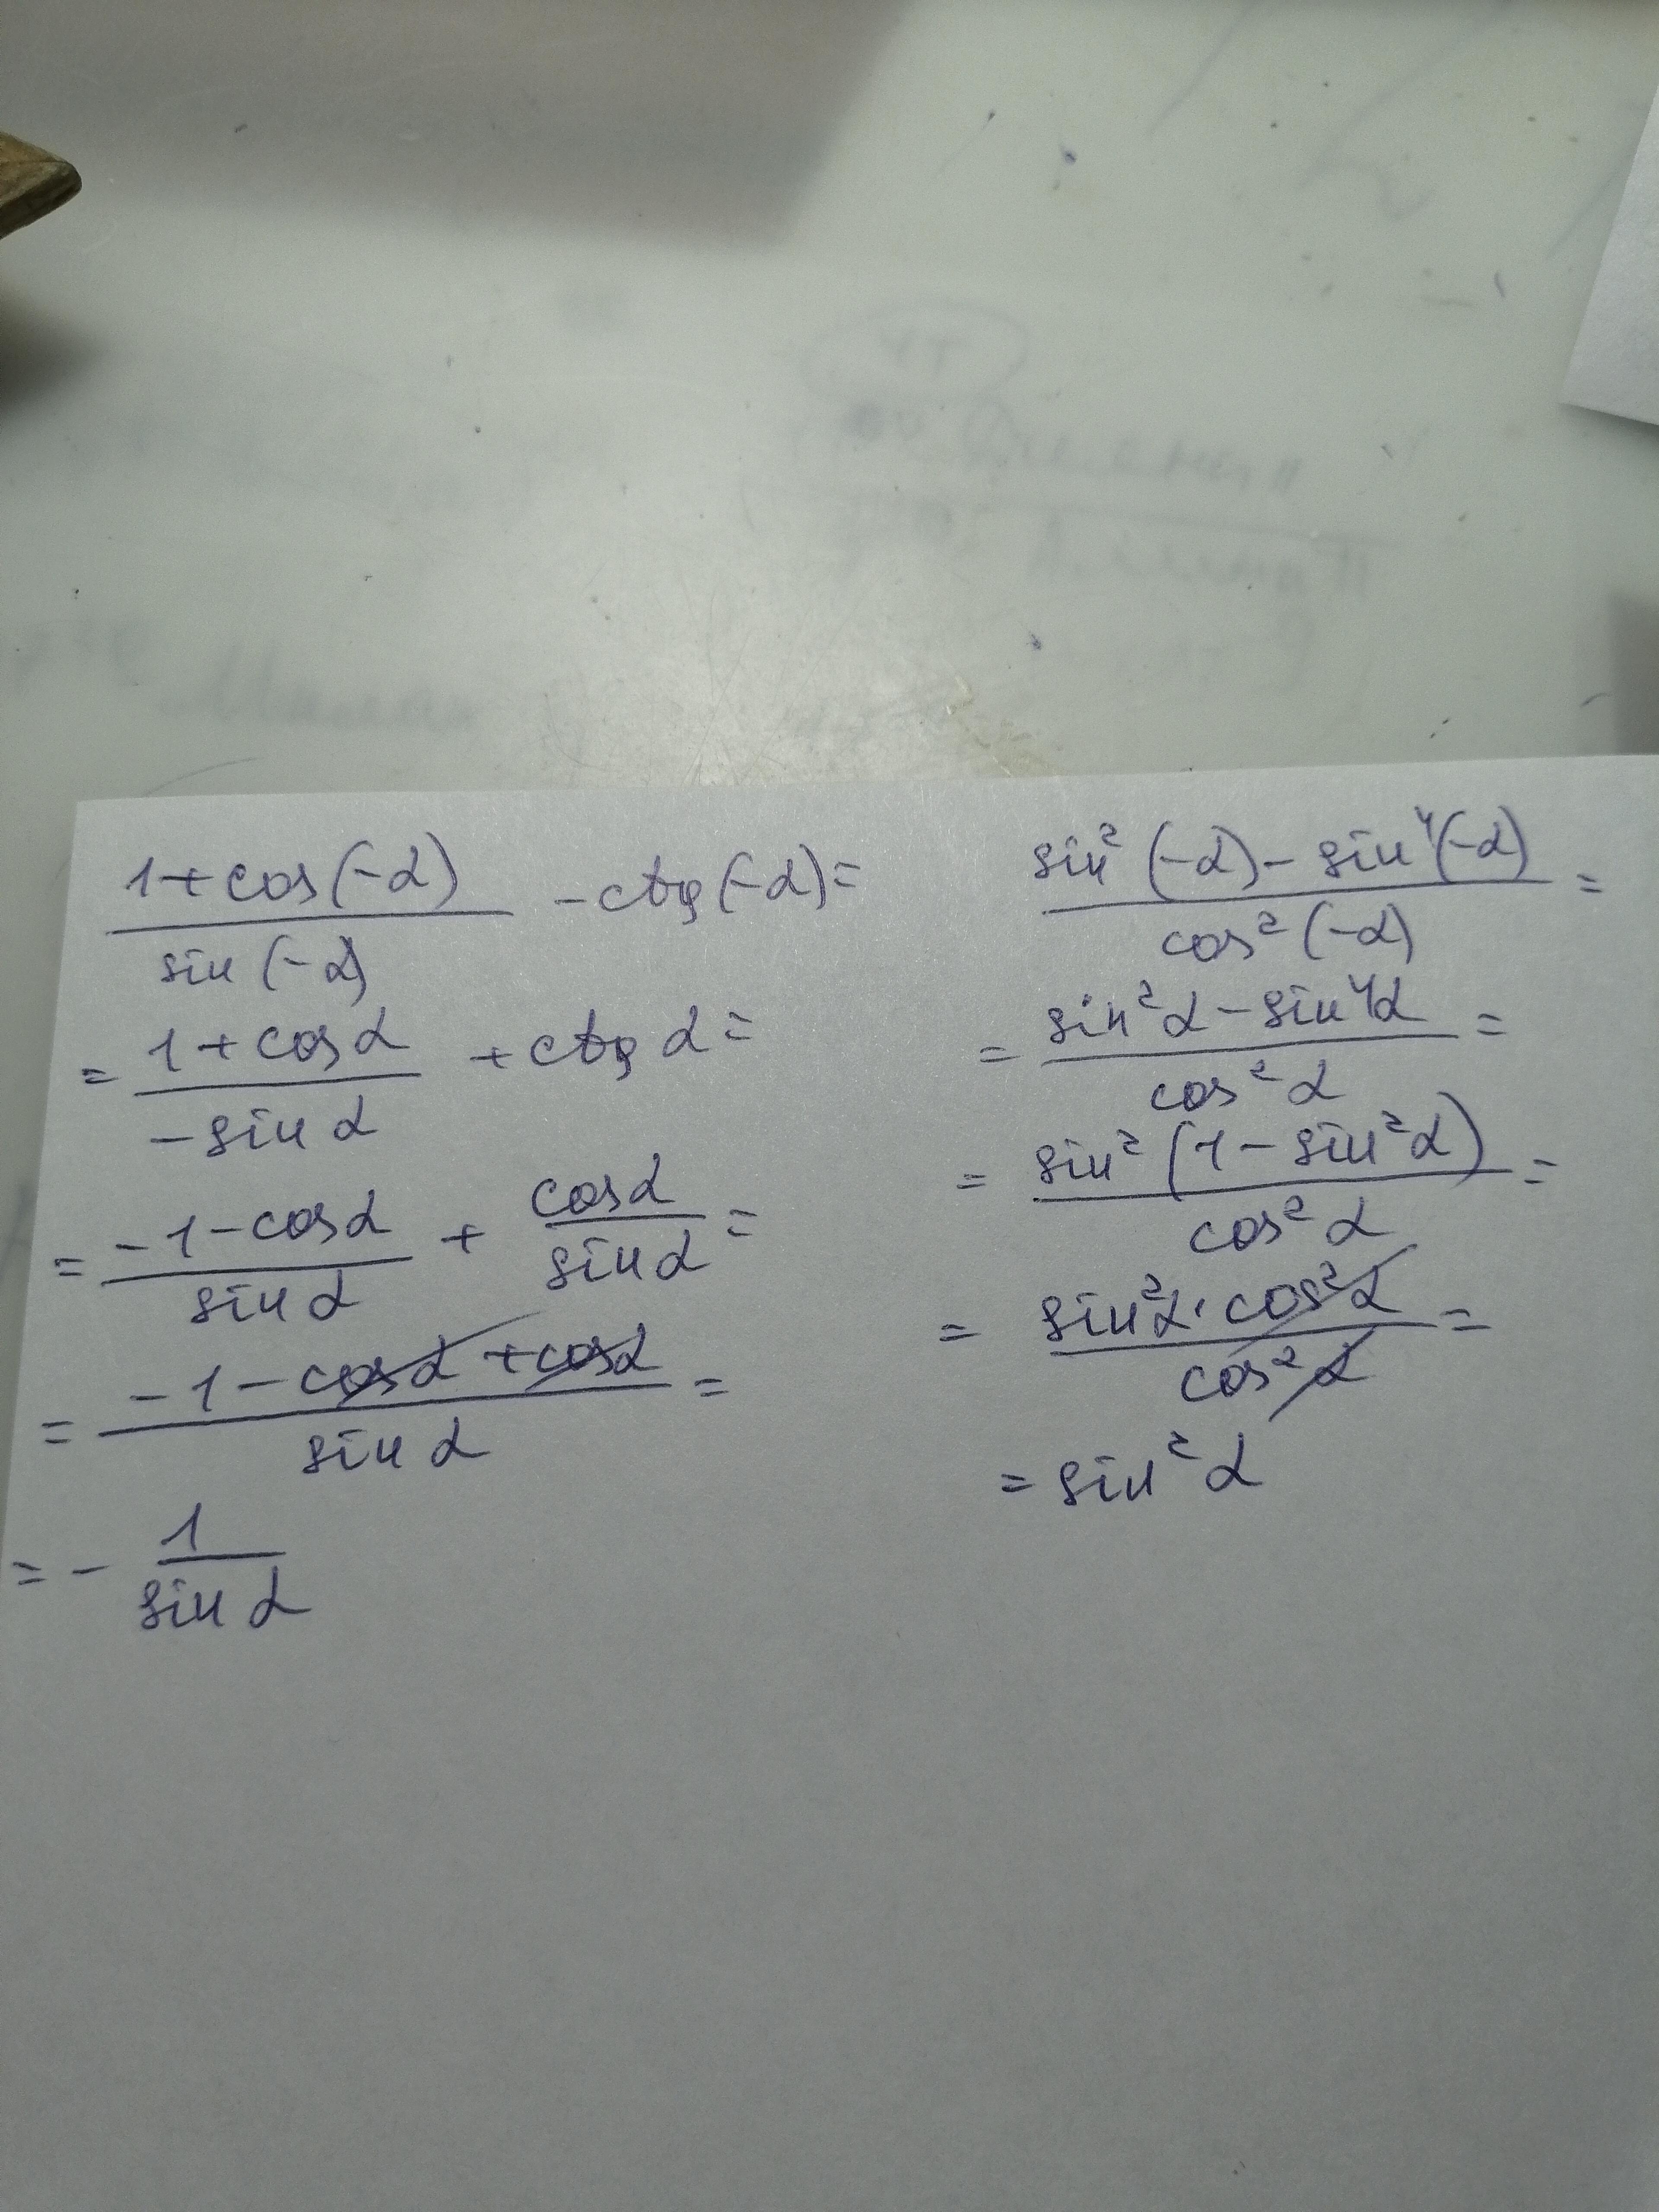 (1+cos(-α))/(sin(-α)) - ctg(-α)=
= (1+cosα)/(-sinα) + ctg α =
= (-1-cosα)/(sinα) + (cosα)/(sinα) =
= (-1-cosα+cosα)/(sinα) =
= - 1/(sinα)
(sin²(-α)-sin⁴(-α))/(cos²(-α)) =
= (sin²α-sin⁴α)/(cos²α) =
= (sin²(1-sin²α))/(cos²α) =
= (sin²α·cos²α)/(cos²α) =
= sin²α